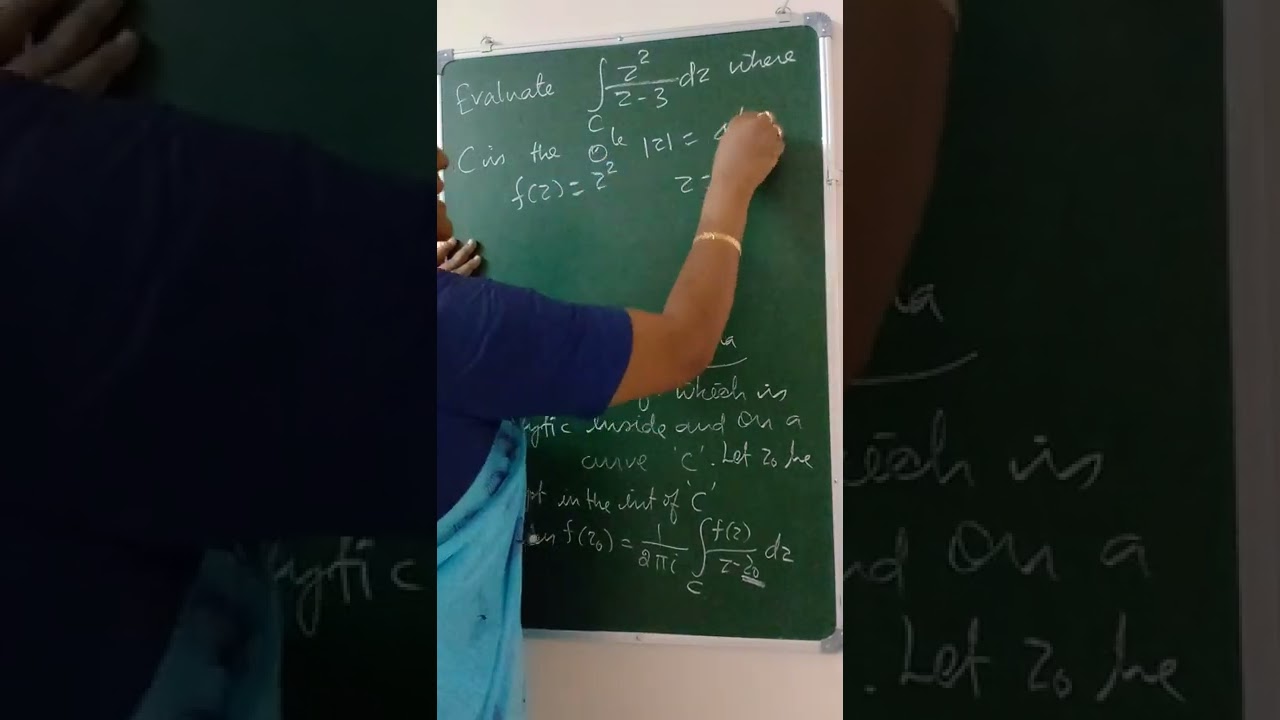 Evaluate ∫_C z²/(z-3) dz where
C is the ⊙le |z| =
f(z) = z² z =
which is
lytic inside and on a
curve 'C'. Let z₀ be
pt in the int of 'C'
f(z₀) = 1/2πi ∫_C f(z)/(z-z₀) dz